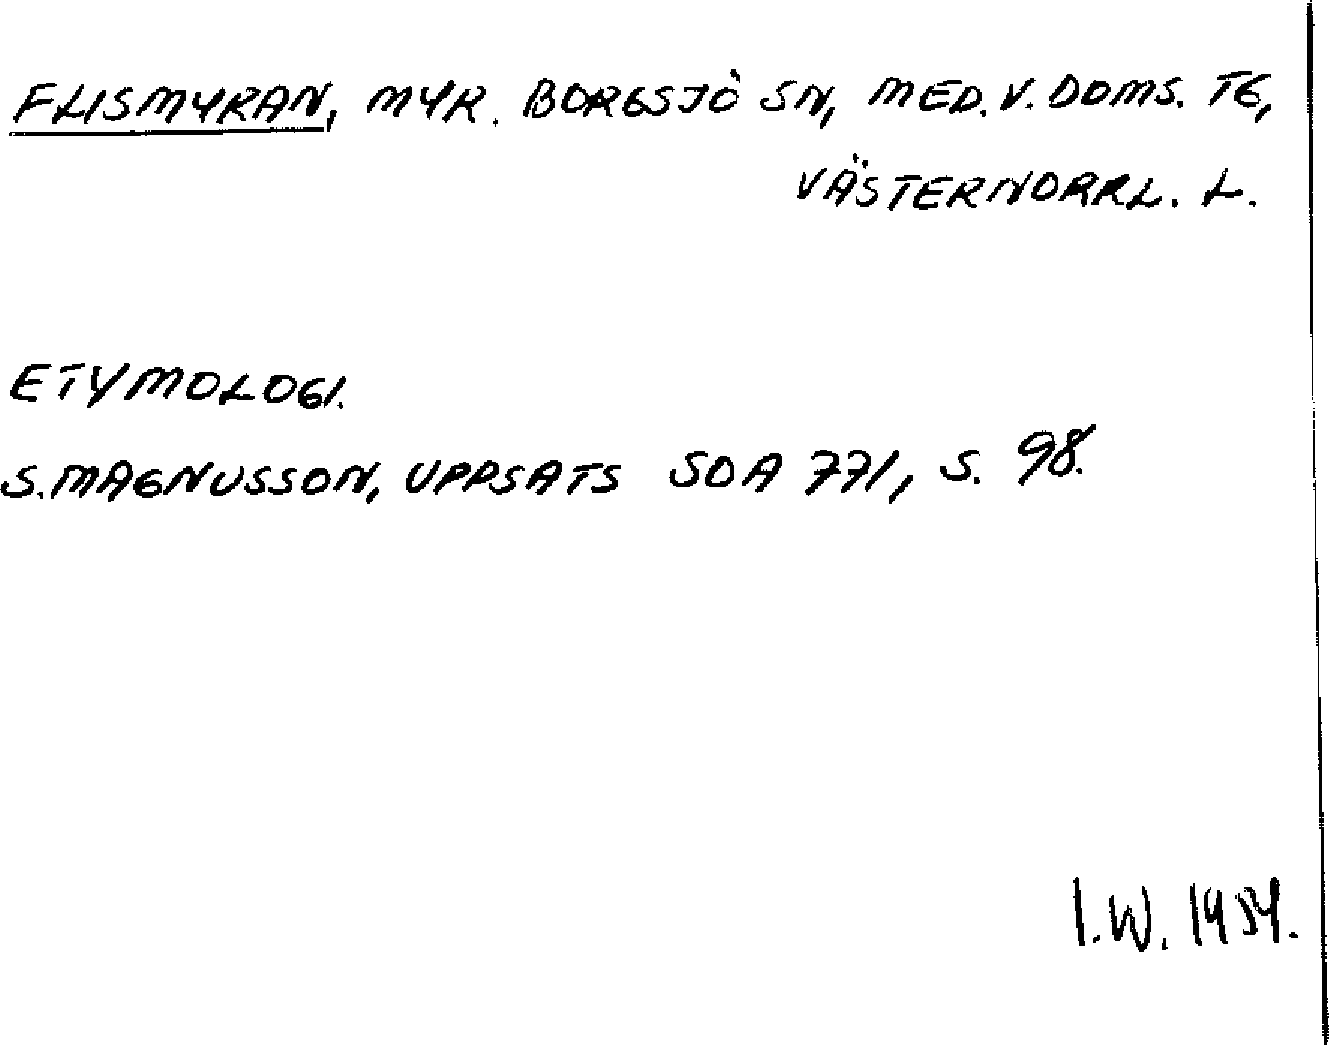 FLISMYRAN, MYR. BORGSJÖ SN, MED. V. DOMS. TG,
VÄSTERNORRL. L.
ETYMOLOGI.
S. MAGNUSSON, UPPSATS SOA 771, S. 98.
I.W. 1954.